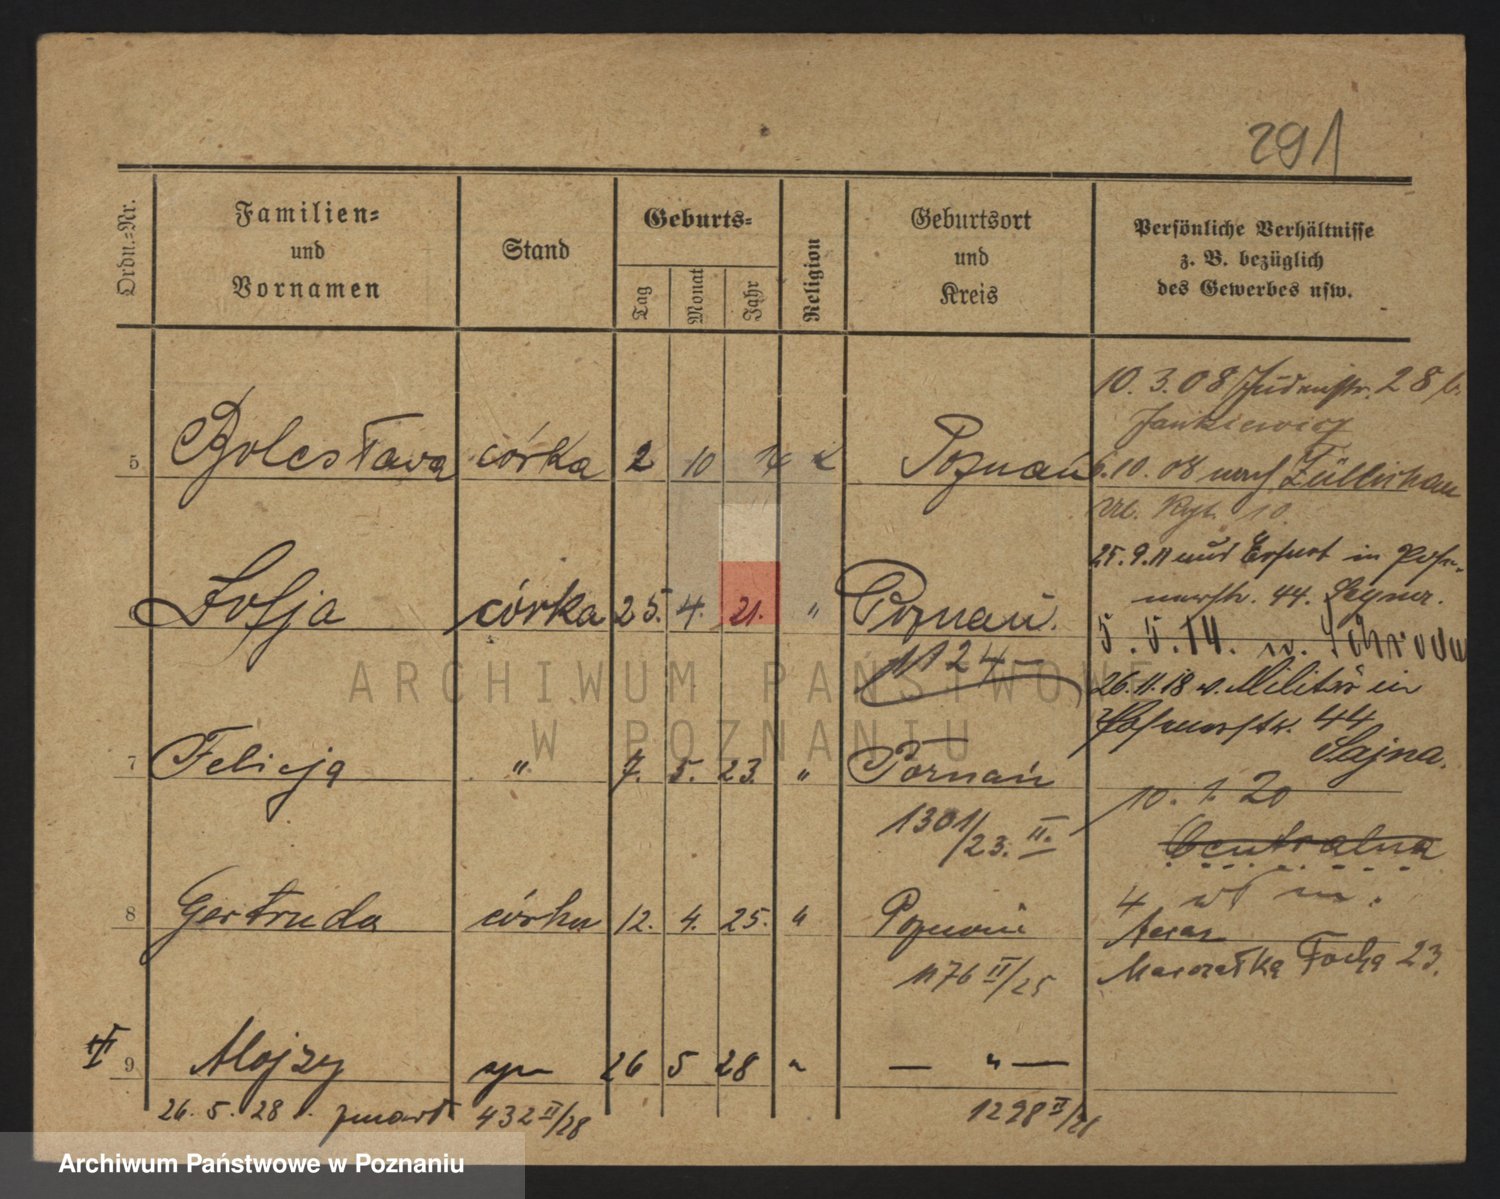 291
Ordn.=Nr.
Familien=
und
Vornamen
Stand
Geburts=
Tag
Monat
Jahr
Religion
Geburtsort
und
Kreis
Persönliche Verhältnisse
z. B. bezüglich
des Gewerbes usw.
5 Bolesława córka 2 10 Poznań
Zofja córka 25. 4. 21. " Poznań.
1124
7 Felicja " 7. 5. 23. " Poznań
1301/23. II.
8 Gertruda córka 12. 4. 25. " Poznań
1176 II/25
9 Alojzy syn 26 5 28 " — " —
26. 5. 28 . zmarł 432 II/28
1298 II/28
10. 3. 08 Judenstr. 28 b.
Jankiewicz
6. 10. 08 nach Züllichau
Ul. Rgt. 10.
25. 9. 11 aus Erfurt in
44.
5. 5. 14. w. Schroda
26. 11. 18 v. Militär in
44
Sajna.
10. 1. 20
Centralna
4 m.
Marszałka Focha 23.
ARCHIWUM PAŃSTWOWE
W POZNANIU
Archiwum Państwowe w Poznaniu